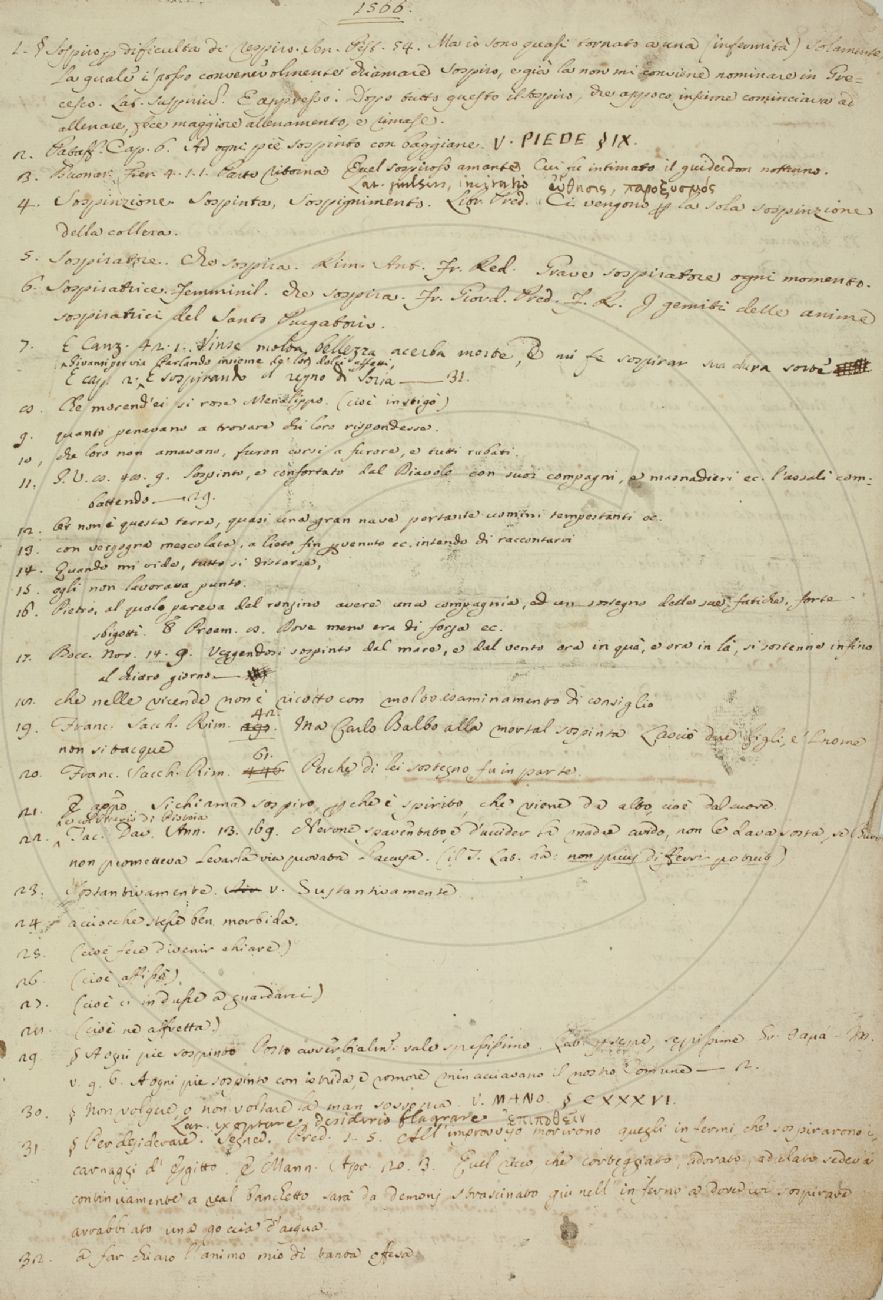 1566.
1. § Sospiro p dificultà di respiro. Sen. Pist. 54. Ma io sono quasi tornato a una (infermità) solamente
La quale i' posso convenevolmente chiamare Sospiro, e già la non mi conviene nominare in Gre=
cesco. Lat. Suspiriū. E appresso: Dopo tutto questo il sospiro, che appoco insieme cominciava ad
allenare, fece maggiore allenamento, e rimase.
2. Pataff. Cap. 6. Ad ogni piè sospinto con baggiane. V. PIEDE § IX.
3. Buonar. Fier. 4. 1. 1. Parto Ritorna Quel sospiroso amante Cui fu intimato il guiderdon notturno.
Lat. pulsus, incitatio ὤθησις, παροξυσμός
4. Sospinzione. Sospinta, Sospignimento. Libr. Pred. Ci vengono p la sola sospinzione
della collera.
5. Sospiratore. Che sospira. Rim. Ant. Fr. Red. Grave sospiratore ogni momento.
6. Sospiratrice. Femminil. che sospira. Fr. Giord. Pred. J. R. I gemiti delle anime
sospiratrici del Santo Purgatorio.
7. E Canz. 42. 1. Vinse molta bellezza acerba morte, E mi fe sospirar sua dura sorte
Givanni per via Parlando insieme de' lor dolci affetti,
E cap. 2. E sospirando il regno di Soria — 31.
8. Che morend'ei si rose Menalippo. (cioè instigò)
9. quanto penavano a trovare chi loro rispondesse.
10, che loro non amavano, furon corsi a furore, e tutti rubati.
11. G. V. 8. 48. 9. Sospinto, e confortato dal Diavolo con suoi compagni, e masnadieri ec. l'assalì com-
battendo. — 29.
12. Or non è questa terra, quasi una gran nave portante uomini tempestanti ec.
13. con vergogna mescolata, a lieto fin pvenuto ec. intendo di raccontarvi
14. Quando mi vide, tutto si distorse,
15. egli non lavorava punto.
16. Pietro, al quale pareva del ronzino avere una compagnia, ed un sostegno delle sue fatiche, forte
sbigottì. E Proem. 8. Dove meno era di forza ec.
17. Bocc. Nov. 14. 9. Veggendosi sospinto dal mare, e dal vento ora in quà, e ora in là, si sostenne infino
al chiaro giorno —
18. che nelle vicende non è ricotto con molto esaminamento di consiglio
19. Franc. Sacch. Rim. 42. Ma Carlo Balbo alla mortal sospinta Lasciò due figli, e 'l nome
non si tacque
20. Franc. Sacch. Rim. 61. Perchè di lei sostegno fu in parte.
21. E appo. Si chiama sospiro, pchè è spirito, che viene da alto, cioè dal cuore.
22. Tac. Dav. Ann. 13. 169. Nerone spaventato, e d'uccider la madre avido, non le dava sosta, se
non prometteva levarla via provata l'accusa. (il T. Lat. ha: non prius differri potuit)
23. Sostantivamente. v. Sustantivamente
24. acciocchè stese ben morbida.
25. (cioè fece divenir chiare)
26 (cioè affisse)
27. (cioè ci indusse a guardarci)
28. (cioè ne affretta)
29. § A ogni piè sospinto Posto avverbialmᵉ. vale spessissimo. Lat. sæpe, sepissime
v. 9. 6. A ogni piè sospinto con istrida, e romore minacciavano il nostro Comune — 2.
30. § Non volgere o non voltare la man sossopra. V. MANO. § CXXXVI.
Lat. exoptare, desiderio flagrare ἐπιποθεῖν
31. § Per desiderare. Segner. Pred. 1. 5. All'improvviso morirono quegli infermi, che sospirarono i
carnaggi d'Egitto. E Mann. Apr. 20. 3. Quel ricco che corteggiato, adorato, adulato sedeva
continuamente a tal banchetto sarà da demonj strascinato giù nell'inferno a dover ivi sospirare
arrabbiato una goccia d'acqua.
32. a far chiaro l'animo mio di tanta offesa